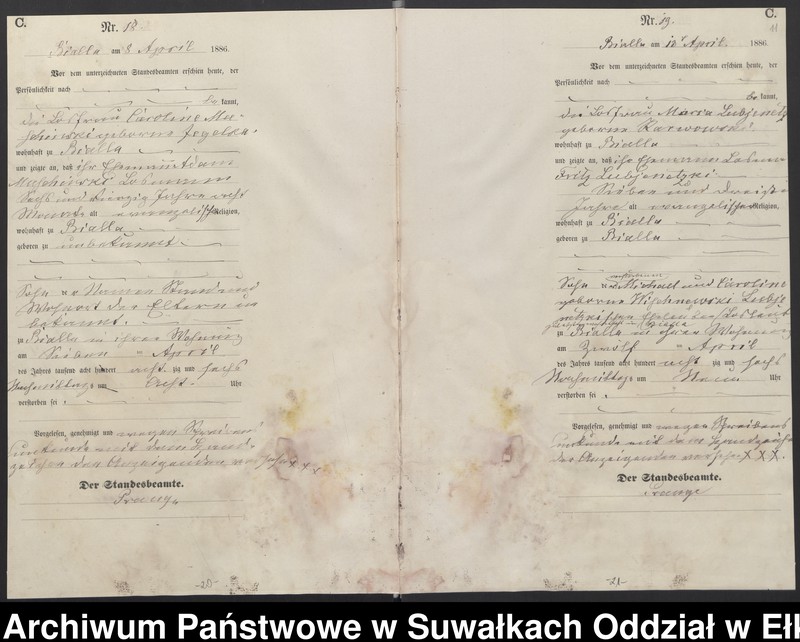 C.
Nr. 18
Bialla am 8 April 1886.
Vor dem unterzeichneten Standesbeamten erschien heute, der
Persönlichkeit nach
be kannt,
die Losfrau Caroline
geborene
wohnhaft zu Bialla
und zeigte an, daß ihr Ehemann Adam
Losmann
Sechs und vierzig Jahre acht
Monate alt evangelischer Religion,
wohnhaft zu Bialla
geboren zu unbekannt
Sohn der Namen Stand und
Wohnort der Eltern un
bekannt.
zu Bialla in ihrer Wohnung
am Sieben ten April
des Jahres tausend acht hundert acht zig und sechs
Nachmittags um acht Uhr
verstorben sei.
Vorgelesen, genehmigt und wegen Schreibens
unkunde mit dem Hand-
zeichen der Anzeigenden versehen X X X
Der Standesbeamte.
Prange
-20-
C.
11
Nr. 19.
Bialla am 12 April 1886.
Vor dem unterzeichneten Standesbeamten erschien heute, der
Persönlichkeit nach
be kannt,
die Losfrau Maria Lubjenetzki
geborene Karwowski
wohnhaft zu Bialla
und zeigte an, daß ihr Ehemann Losmann
Fritz Lubjenetzki
Sieben und dreißig
Jahre alt evangelischer Religion,
wohnhaft zu Bialla
geboren zu Bialla
Sohn des Michael und Caroline
geborene Wischnewski
zu Bialla in ihrer Wohnung
am Zwölf ten April
des Jahres tausend acht hundert acht zig und sechs
Nachmittags um Neun Uhr
verstorben sei.
Vorgelesen, genehmigt und wegen Schreibens
unkunde mit dem Handzeichen
der Anzeigenden X X X.
Der Standesbeamte.
Prange
-21-
Archiwum Państwowe w Suwałkach Oddział w Eł